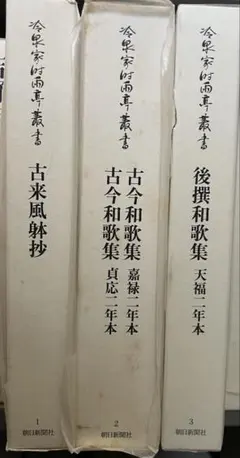 冷泉家時雨亭叢書
古来風躰抄
1
朝日新聞社
冷泉家時雨亭叢書
古今和歌集 嘉禄二年本
古今和歌集 貞応二年本
2
朝日新聞社
冷泉家時雨亭叢書
後撰和歌集 天福二年本
3
朝日新聞社